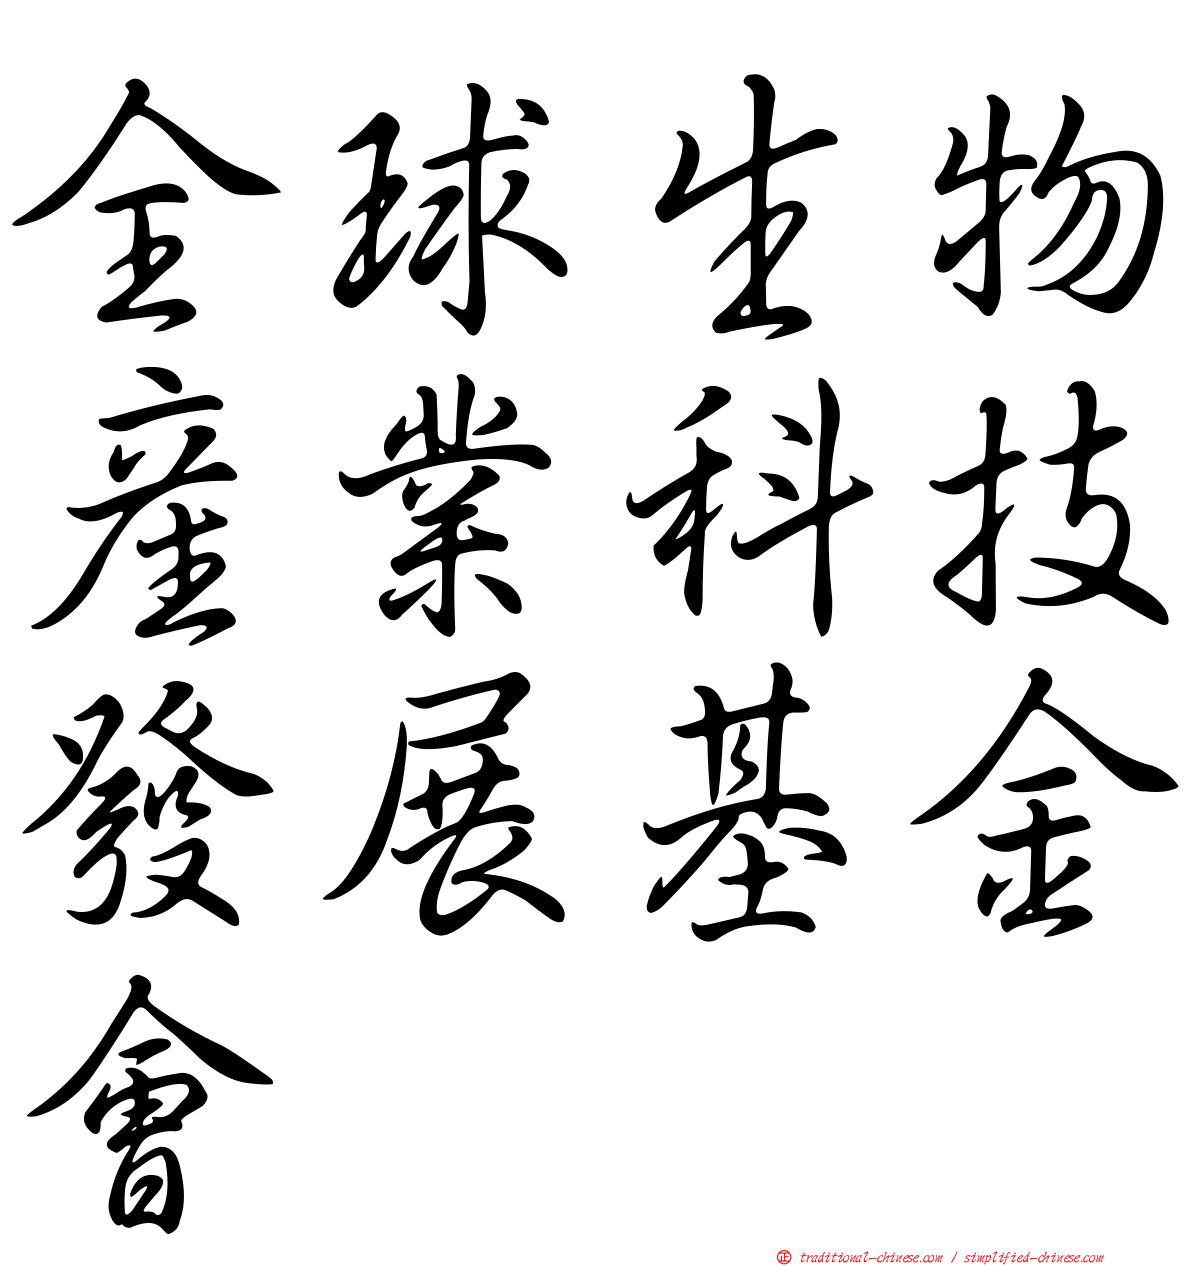 全球生物
產業科技
發展基金
會
㊣ traditional-chinese.com / simplified-chinese.com